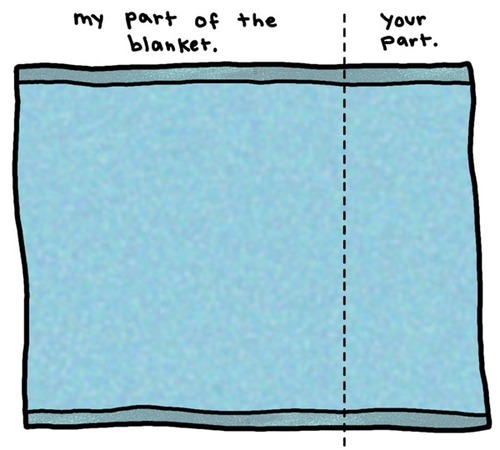 my part of the
blanket.
your
part.